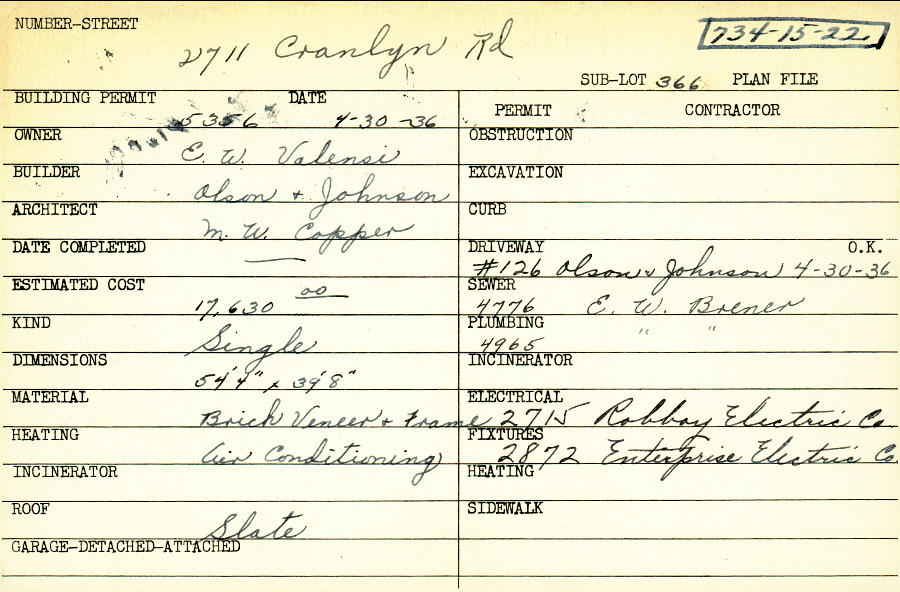 NUMBER-STREET
2711 Cranlyn Rd
734-15-22
SUB-LOT 366 PLAN FILE
BUILDING PERMIT DATE
5356 4-30-36
PERMIT CONTRACTOR
OWNER
E. W. Valensi
BUILDER
Olson & Johnson
ARCHITECT
M. W. Copper
DATE COMPLETED
—
ESTIMATED COST
17,630 00
KIND
Single
DIMENSIONS
54'4" x 39'8"
MATERIAL
Brick Veneer & Frame
HEATING
Air Conditioning
INCINERATOR
ROOF
Slate
GARAGE-DETACHED-ATTACHED
OBSTRUCTION
EXCAVATION
CURB
DRIVEWAY O.K.
#126 Olson & Johnson 4-30-36
SEWER
4776 E. W. Brener
PLUMBING
4965 " "
INCINERATOR
ELECTRICAL
2715 Robboy Electric Co.
FIXTURES
2872 Enterprise Electric Co
HEATING
SIDEWALK